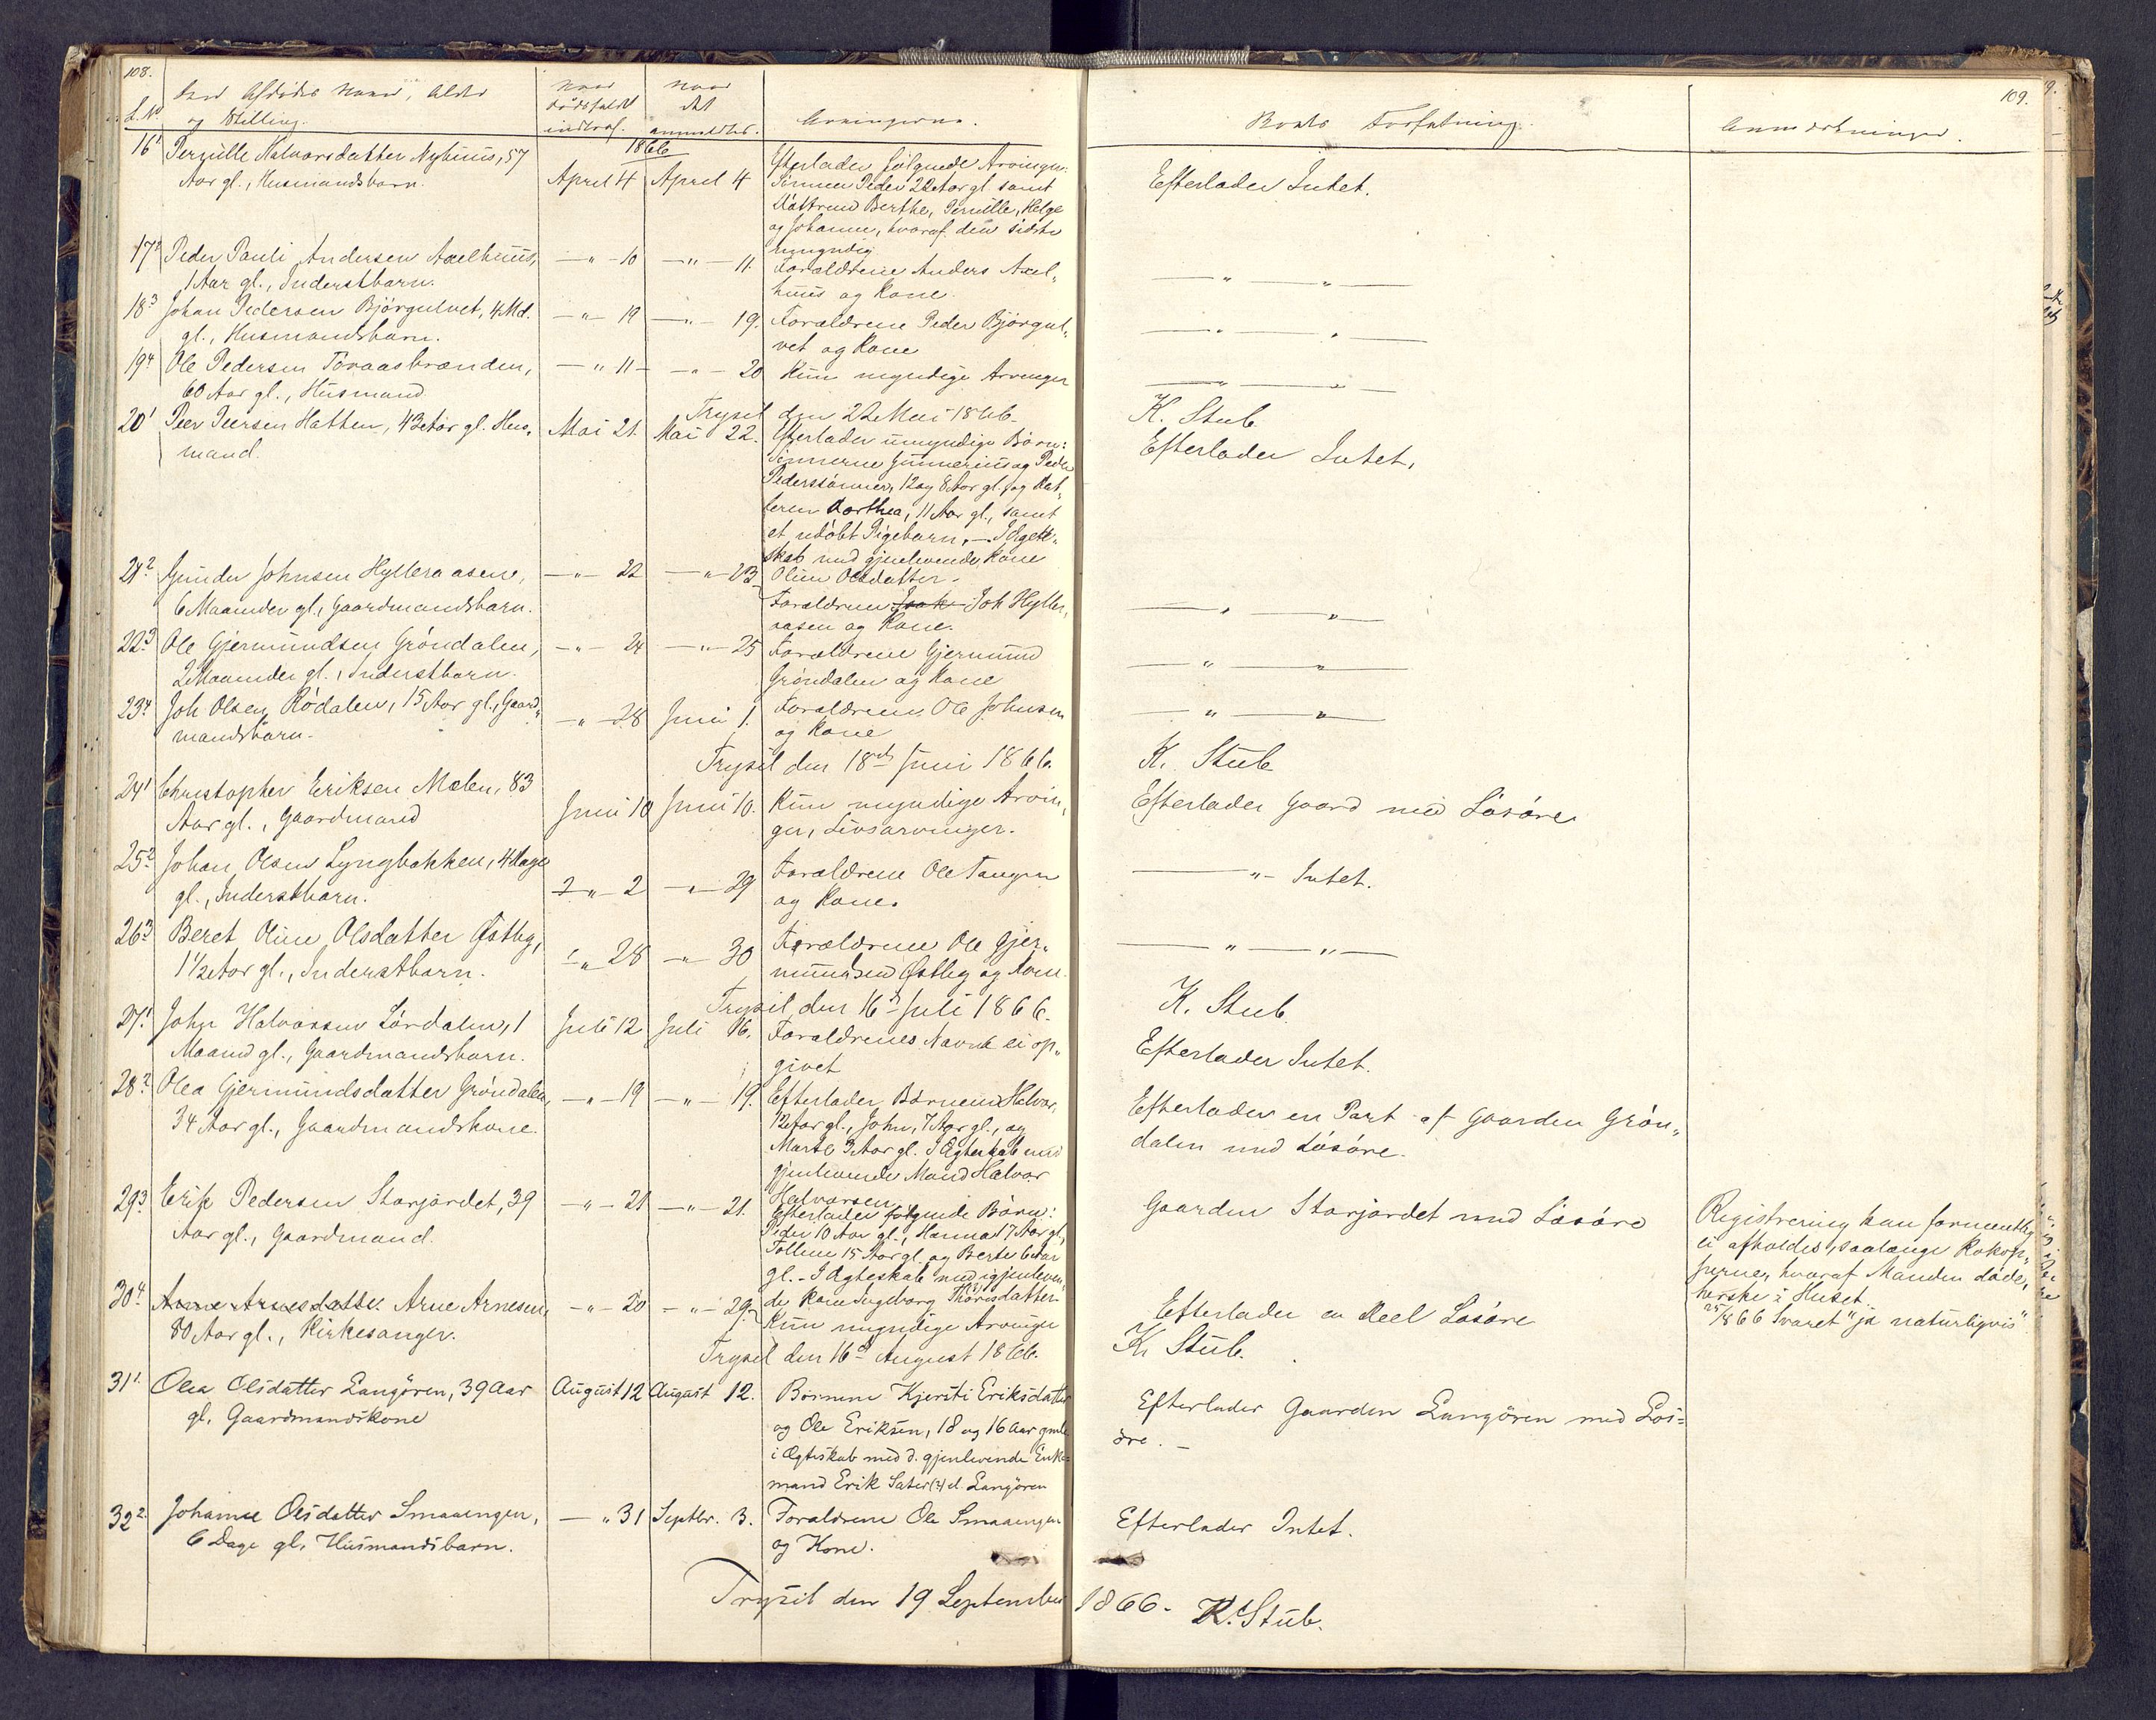 108.
L. No
Den Afdødes Navn, Alder
og Stilling.
Naar
Dødsfaldet
indtraf.
Naar
det
anmeldtes.
Arvingerne.
Boets Forfatning.
Anmærkninger.
109.
1866
16 1 Pernille Halvorsdatter Nyhuus, 57
Aar gl., Husmandsbarn.
April 4 April 4
Efterlader følgende Arvinger:
Sønnen Peder 22 Aar gl. samt
Døttrene Berthe, Pernille, Helge
og Johanne, hvoraf den sidste
umyndig
Efterlader Intet.
17 2 Peder Pauli Andersen Axelhuus,
1 Aar gl., Inderstbarn.
— " — 10 — " — 11.
Forældrene Anders Axel-
huus og Kone.
— " — " —
18 3 Johan Pedersen Bjørgulvet, 4 Md.
gl., Husmandsbarn.
— " — 19 — " — 19.
Forældrene Peder Bjørgul-
vet og Kone
— " — " —
19 4 Ole Pedersen Toraasbrænden,
60 Aar gl., Husmand
— " 11 — — " — 20
Kun myndige Arvinger
— " — " —
Trysil den 22 Mai 1866.
K. Stub
20 1 Peer Peersen Hatten, 43 Aar gl. Hus-
mand.
Mai 21. Mai 22.
Efterlader umyndige Børn:
Sønnerne Gunnerius og Peder
Pederssønner, 12 og 8 Aar gl. og Dat-
teren Dorthea, 11 Aar gl., samt
et udøbt Pigebarn. — I Ægte-
skab med gjenlevende Kone
Oline Olsdatter.
Efterlader Intet.
21 2 Gunder Johnsen Hylleraasen,
6 Maaneder gl., Gaardmandsbarn.
— " — 22 — " — 23
Forældrene Joh Hyller-
aasen og Kone.
— " — " —
22 3 Ole Gjermundsen Grøndalen,
2 Maaneder gl., Inderstbarn.
— " — 24 — " — 25
Forældrene Gjermund
Grøndalen og Kone
— " — " —
23 4 Joh Olsen Rødalen, 15 Aar gl., Gaard-
mandsbarn.
— " — 28 Juni 1.
Forældrene Ole Johnsen
og Kone
— " — " —
Trysil den 18de Juni 1866.
K. Stub
24 1 Christopher Eriksen Mælen, 83
Aar gl., Gaardmand
Juni 10 Juni 10.
Kun myndige Arvin-
ger, Livsarvinger.
Efterlader Gaard med Løsøre
25 2 Johan Olsen Lyngbakken, 4 Dage
gl., Inderstbarn.
— " — 2 — " — 29
Forældrene Ole Tangen
og Kone.
— " — Intet.
26 3 Beret Oline Olsdatter Østby,
1 1/2 Aar gl., Inderstbarn.
— " 28 — " — 30
Forældrene Ole Gjer-
mundsen Østby og Kone
— " — " —
Trysil den 16de Juli 1866.
K. Stub.
27 1 John Halvorsen Lørdalen, 1
Maaned gl., Gaardmandsbarn.
Juli 12 Juli 16.
Forældrenes Navne ei op-
givet
Efterlader Intet.
28 2 Olea Gjermundsdatter Grøndalen,
34 Aar gl., Gaardmandskone.
— " — 19 — " — 19.
Efterlader Børnene Halvor,
12 Aar gl., John, 7 Aar gl., og
Marte 3 Aar gl. I Ægteskab med
gjenlevende Mand Halvor
Halvorsen
Efterlader en Part af Gaarden Grøn-
dalen med Løsøre.
29 3 Erik Pedersen Storjordet, 39
Aar gl., Gaardmand.
— " — 21 — " — 21.
Efterlader følgende Børn:
Peder 10 Aar gl., Hanna 17 Aar gl.,
Tolline 15 Aar gl. og Berte 6 Aar
gl. — I Ægteskab med igjenleven-
de Kone Ingeborg Thoresdatter.
Gaarden Storjordet med Løsøre
Registrering kan formentlig
ei afholdes, saalænge Kokop-
perne, hvoraf Manden døde,
herske i Huset
1866 Svaret "ja naturligvis"
30 4 Arne Arnesdatter Arne Arnesen,
80 Aar gl., Kirkesanger.
— " — 20 — " — 29.
Kun myndige Arvinger
Efterlader en Deel Løsøre
Trysil den 16de August 1866.
K. Stub.
31 1 Olea Olsdatter Langøren, 39 Aar
gl. Gaardmandskone
August 12 August 12.
Børnene Kjersti Eriksdatter
og Ole Eriksen, 18 og 16 Aar gmle
i Ægteskab med d. gjenlevende Enke-
mand Erik Sæter (?) el. Langøren
Efterlader Gaarden Langøren med Løs-
øre. —
32 2. Johanne Olsdatter Smaaengen,
6 Dage gl. Husmandsbarn.
— " 31 Septbr. 3.
Forældrene Ole Smaaengen
og Kone.
Efterlader Intet.
Trysil den 19 September 1866. K. Stub.